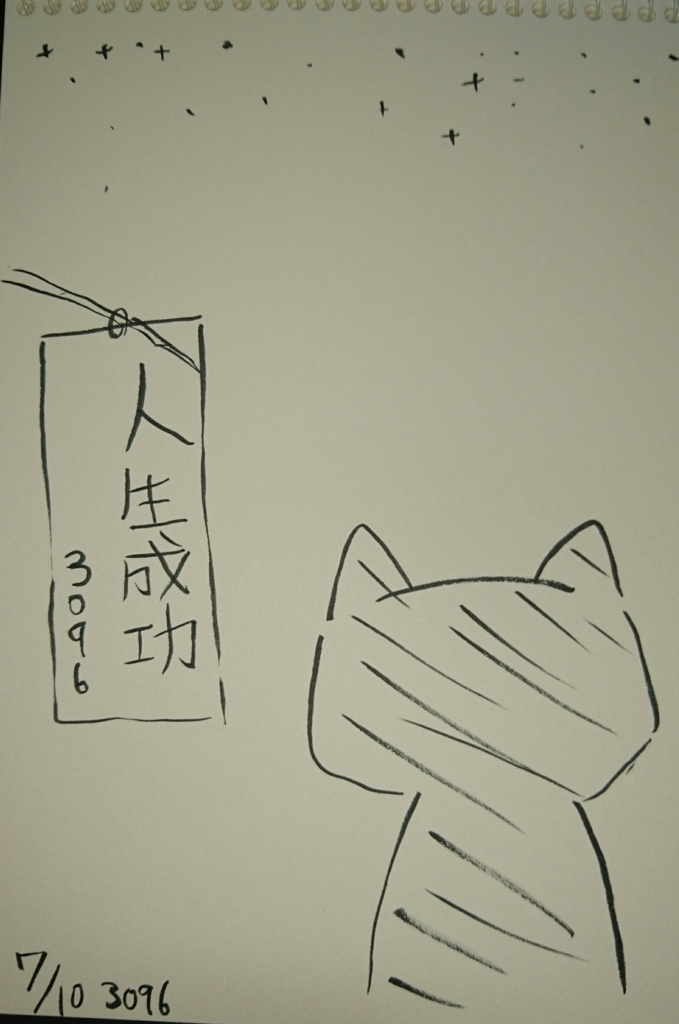 人生成功
3096
7/10 3096